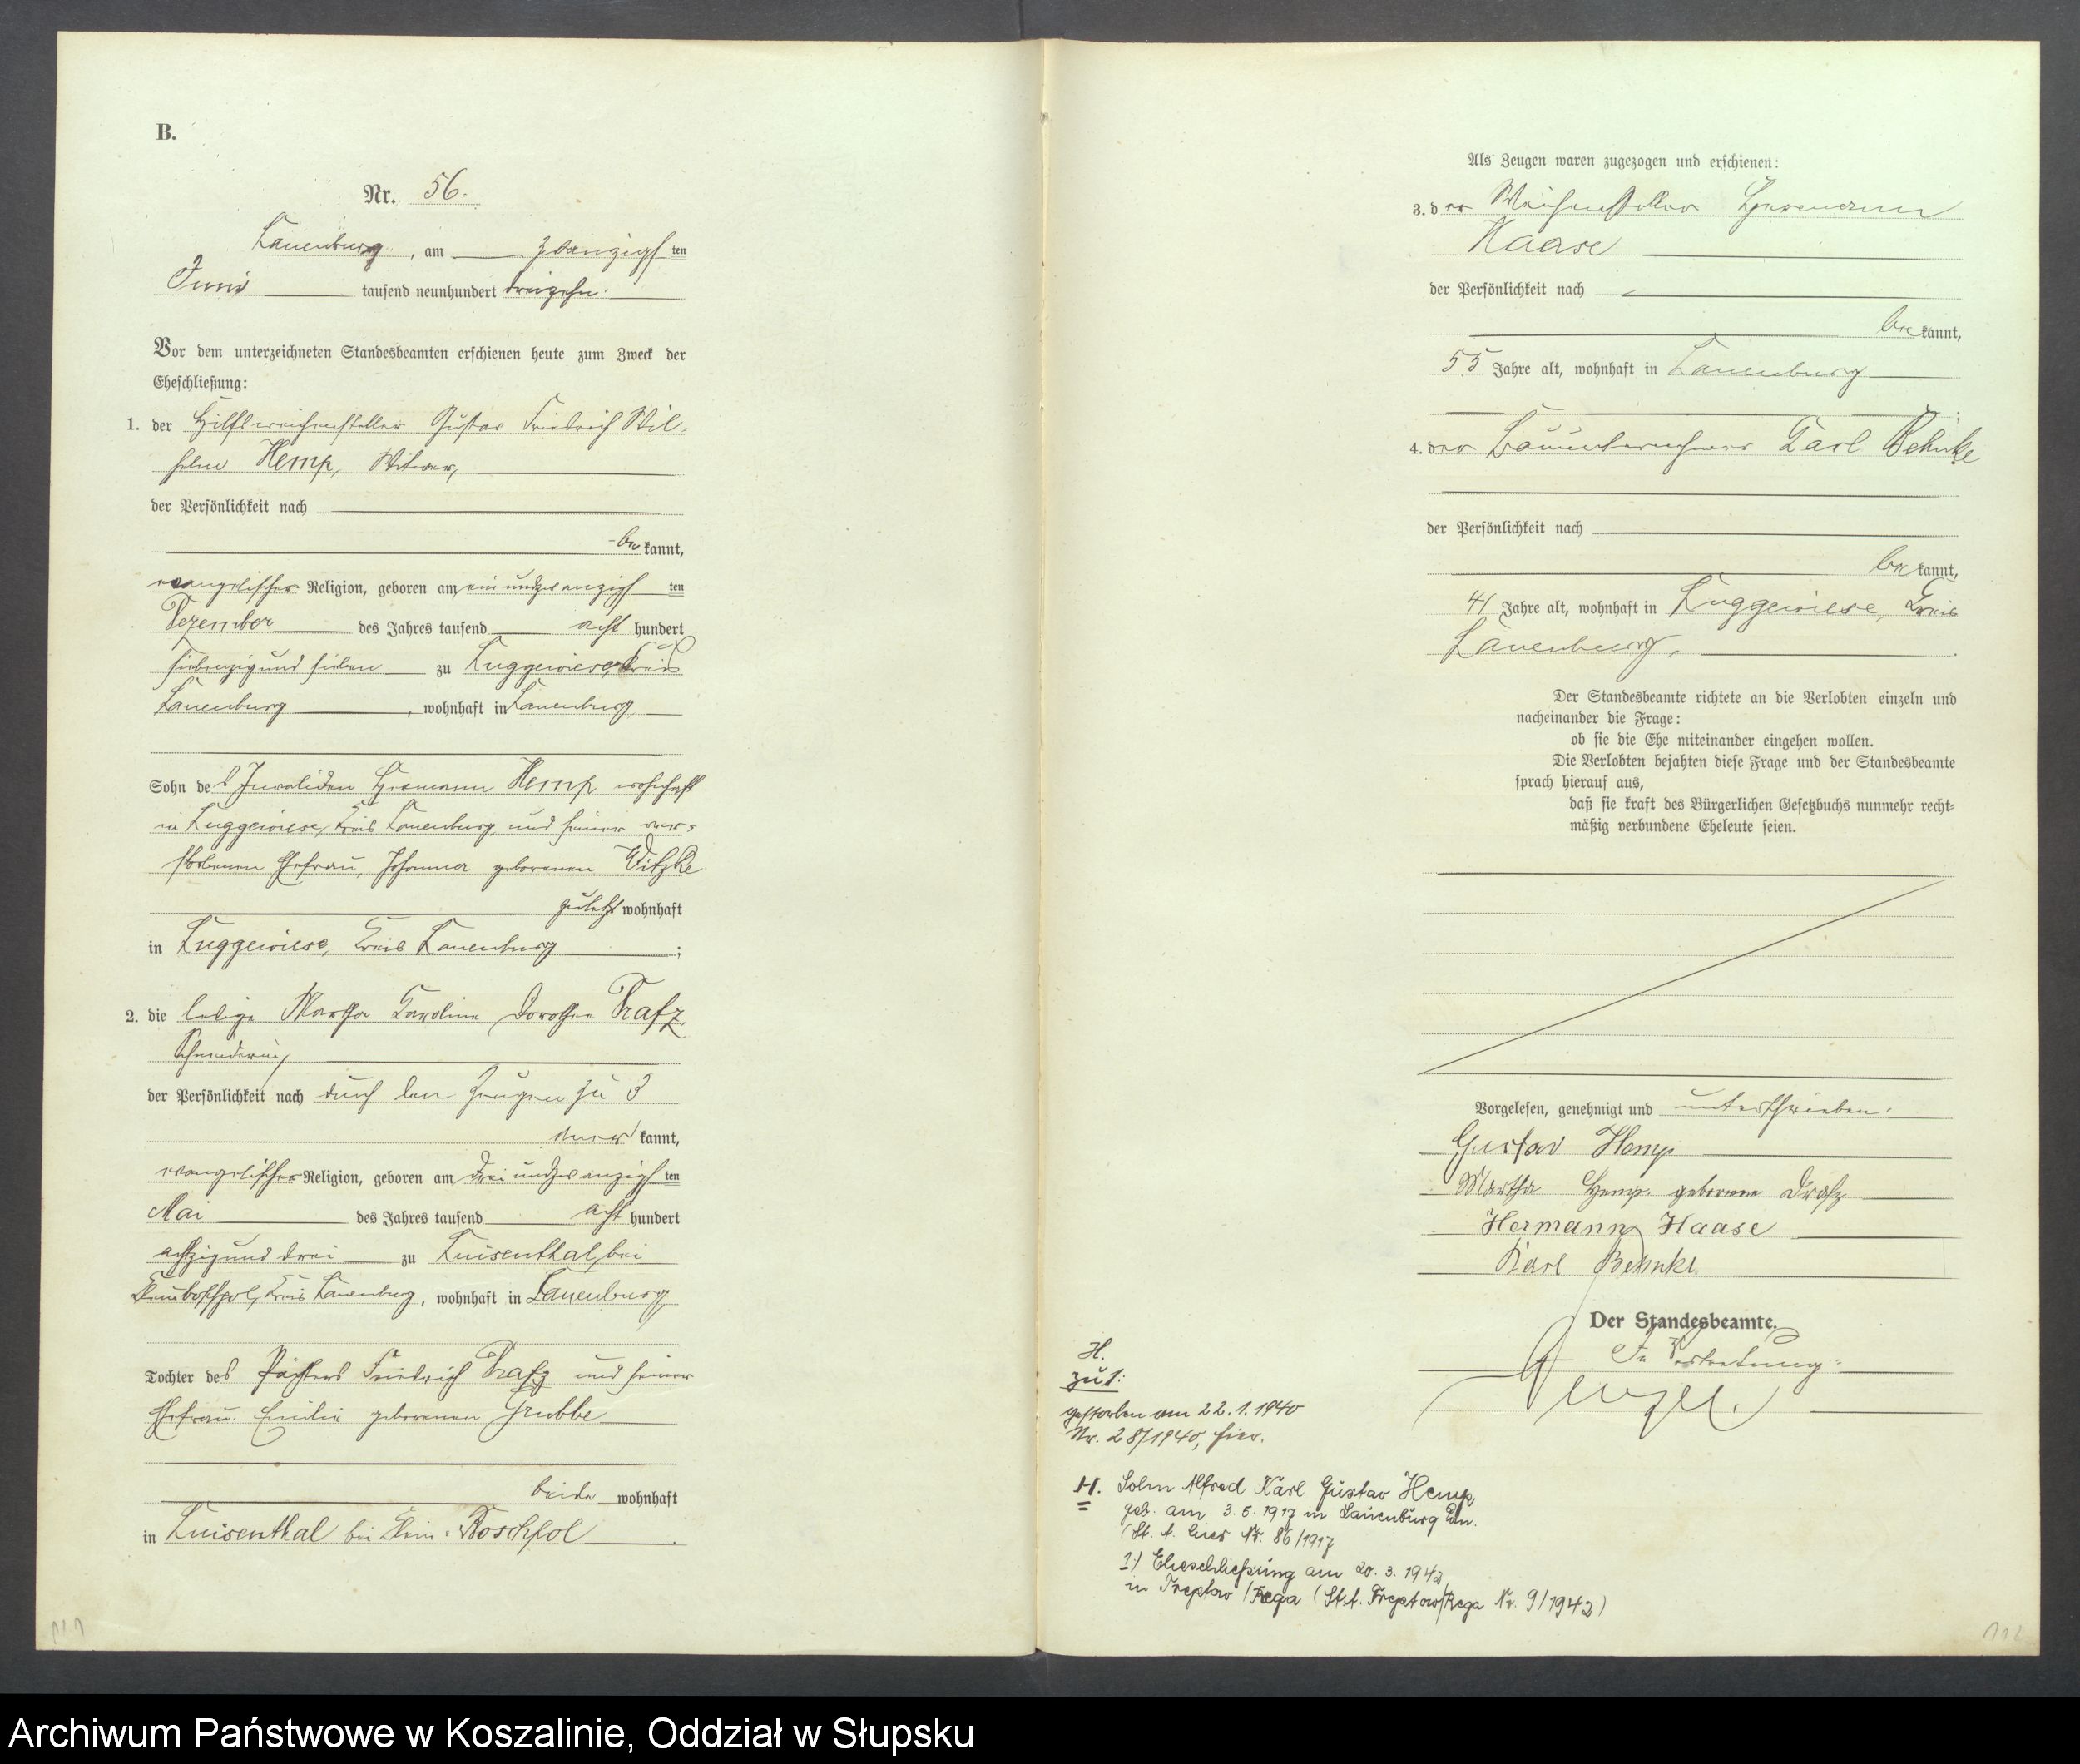 B.
Nr. 56.
Lauenburg, am zwanzigsten
Juni tausend neunhundert dreizehn.
Vor dem unterzeichneten Standesbeamten erschienen heute zum Zweck der
Eheschließung:
1. der Hilfsweichensteller Gustav Friedrich Wil-
helm Hemp, Witwer,
der Persönlichkeit nach
bekannt,
evangelischer Religion, geboren am einundzwanzigsten
Dezember des Jahres tausend acht hundert
siebenzig und sieben zu Luggewiese, Kreis
Lauenburg, wohnhaft in Lauenburg
Sohn des Invaliden Hermann Hemp wohnhaft
in Luggewiese, Kreis Lauenburg und seiner ver-
storbenen Ehefrau, Johanna geborenen Witzke
zuletzt wohnhaft
in Luggewiese, Kreis Lauenburg;
2. die ledige Martha Karoline Dorothea Drafz,
Schneiderin,
der Persönlichkeit nach durch den Zeugen zu 3
anerkannt,
evangelischer Religion, geboren am dreiundzwanzigsten
Mai des Jahres tausend acht hundert
achtzig und drei zu Luisenthal, bei
Kreis Lauenburg, wohnhaft in Lauenburg
Tochter des Pächters Friedrich Drafz und seiner
Ehefrau Emilie geborenen Grubbe
beide wohnhaft
in Luisenthal bei Klein-Boschpol.
111
Als Zeugen waren zugezogen und erschienen:
3. der Weichensteller Hermann
Haase
der Persönlichkeit nach
bekannt,
55 Jahre alt, wohnhaft in Lauenburg
;
4. der Bauunternehmer Karl Behnke
der Persönlichkeit nach
bekannt,
41 Jahre alt, wohnhaft in Luggewiese, Kreis
Lauenburg.
Der Standesbeamte richtete an die Verlobten einzeln und
nacheinander die Frage:
ob sie die Ehe miteinander eingehen wollen.
Die Verlobten bejahten diese Frage und der Standesbeamte
sprach hierauf aus,
daß sie kraft des Bürgerlichen Gesetzbuchs nunmehr recht-
mäßig verbundene Eheleute seien.
Vorgelesen, genehmigt und unterschrieben.
Gustav Hemp
Martha Hemp geborene Drafz
Hermann Haase
Karl Behnke.
Der Standesbeamte.
In Vertretung:
H.
zu 1:
gestorben am 22.1.1940
Nr. 28/1940, hier.
H. Sohn Alfred Karl Gustav Hemp
geb. am 3.5.1917 in Lauenburg Pom.
(St. A. hier Nr. 86/1917
1) Eheschließung am 20.3.1942
in Treptow/Rega (St.A. Treptow/Rega Nr. 9/1942)
112
Archiwum Państwowe w Koszalinie, Oddział w Słupsku